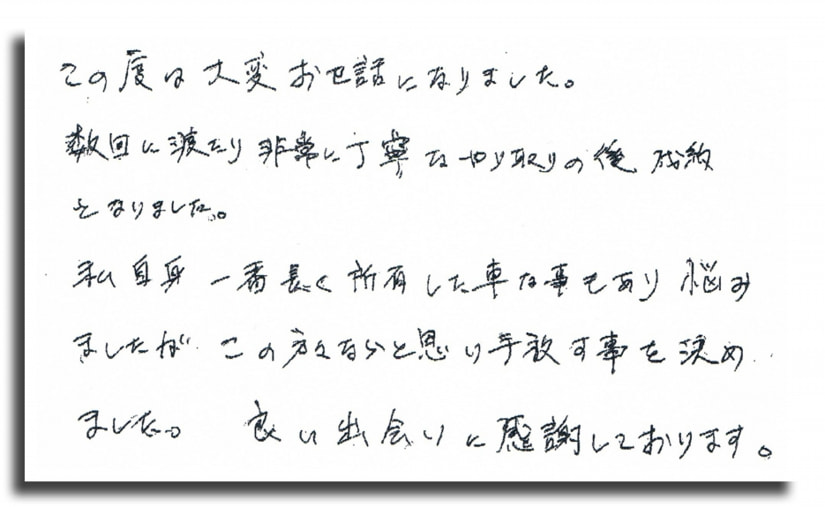 この度は大変お世話になりました。
数回に渡たり非常に丁寧なやり取りの後成約
となりました。
私自身一番長く所有した車な事もあり悩み
ましたが この方々ならと思い手放す事を決め
ました。 良い出会いに感謝しております。